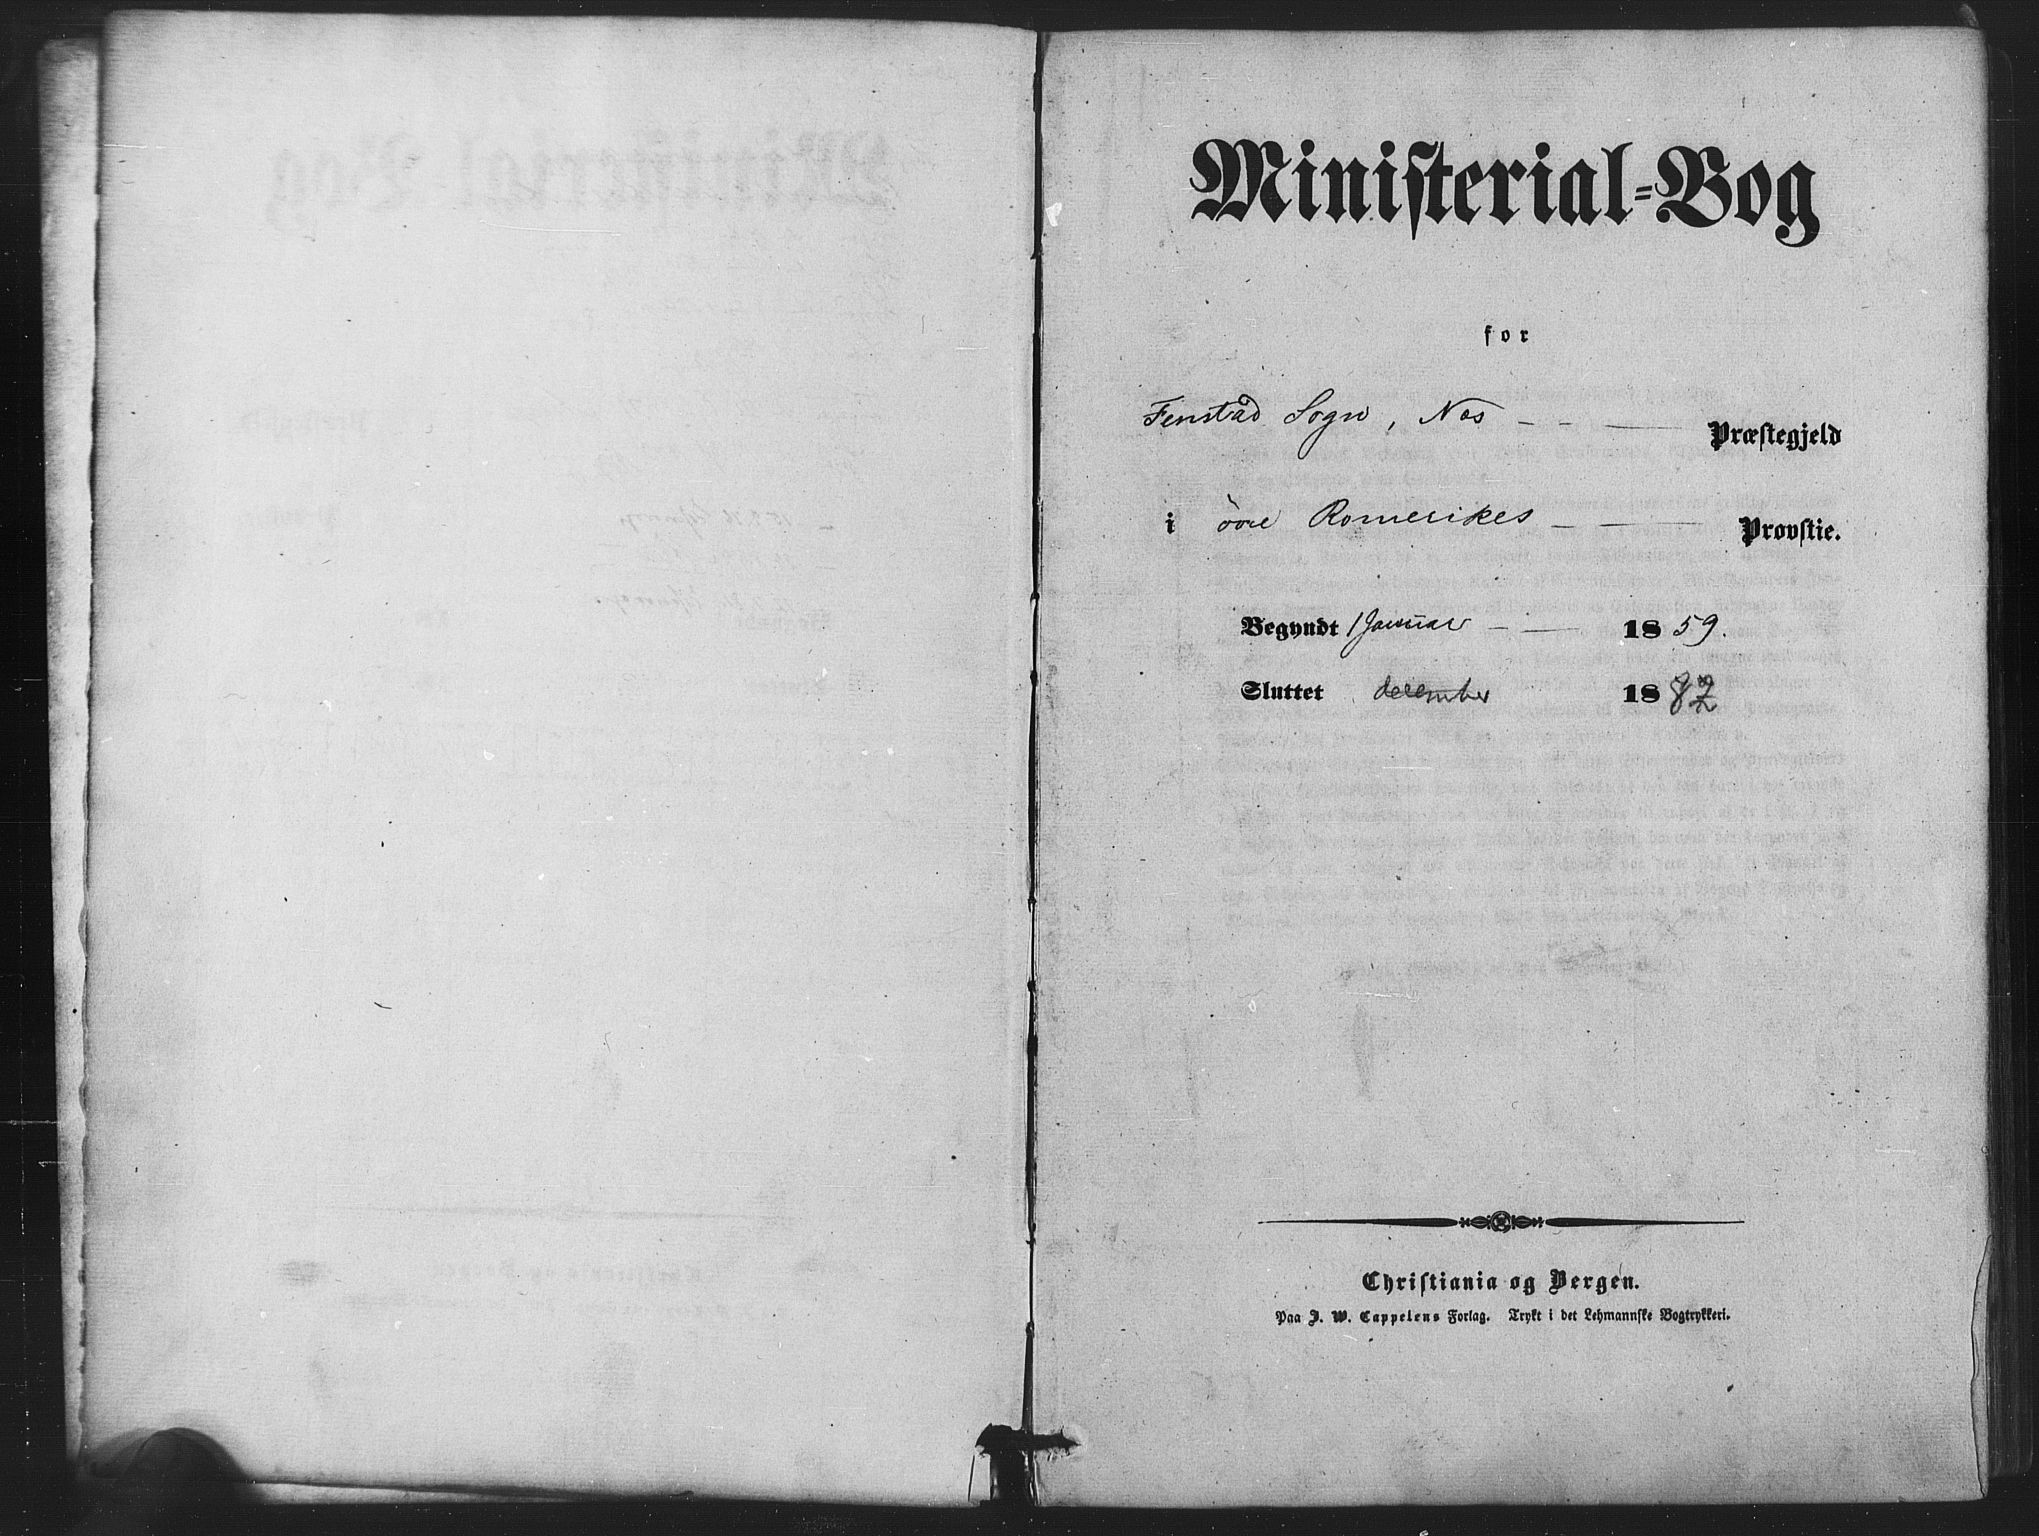 Ministerial-Bog
for
Fenstad Sogn, Nes - - — Præstegjeld
i övre Romerikes - — Provstie.
Begyndt 1 Januar - — 1859.
Sluttet december 1882
Christiania og Bergen.
Paa J. W. Cappelens Forlag. Trykt i det Lehmannske Bogtrykkeri.